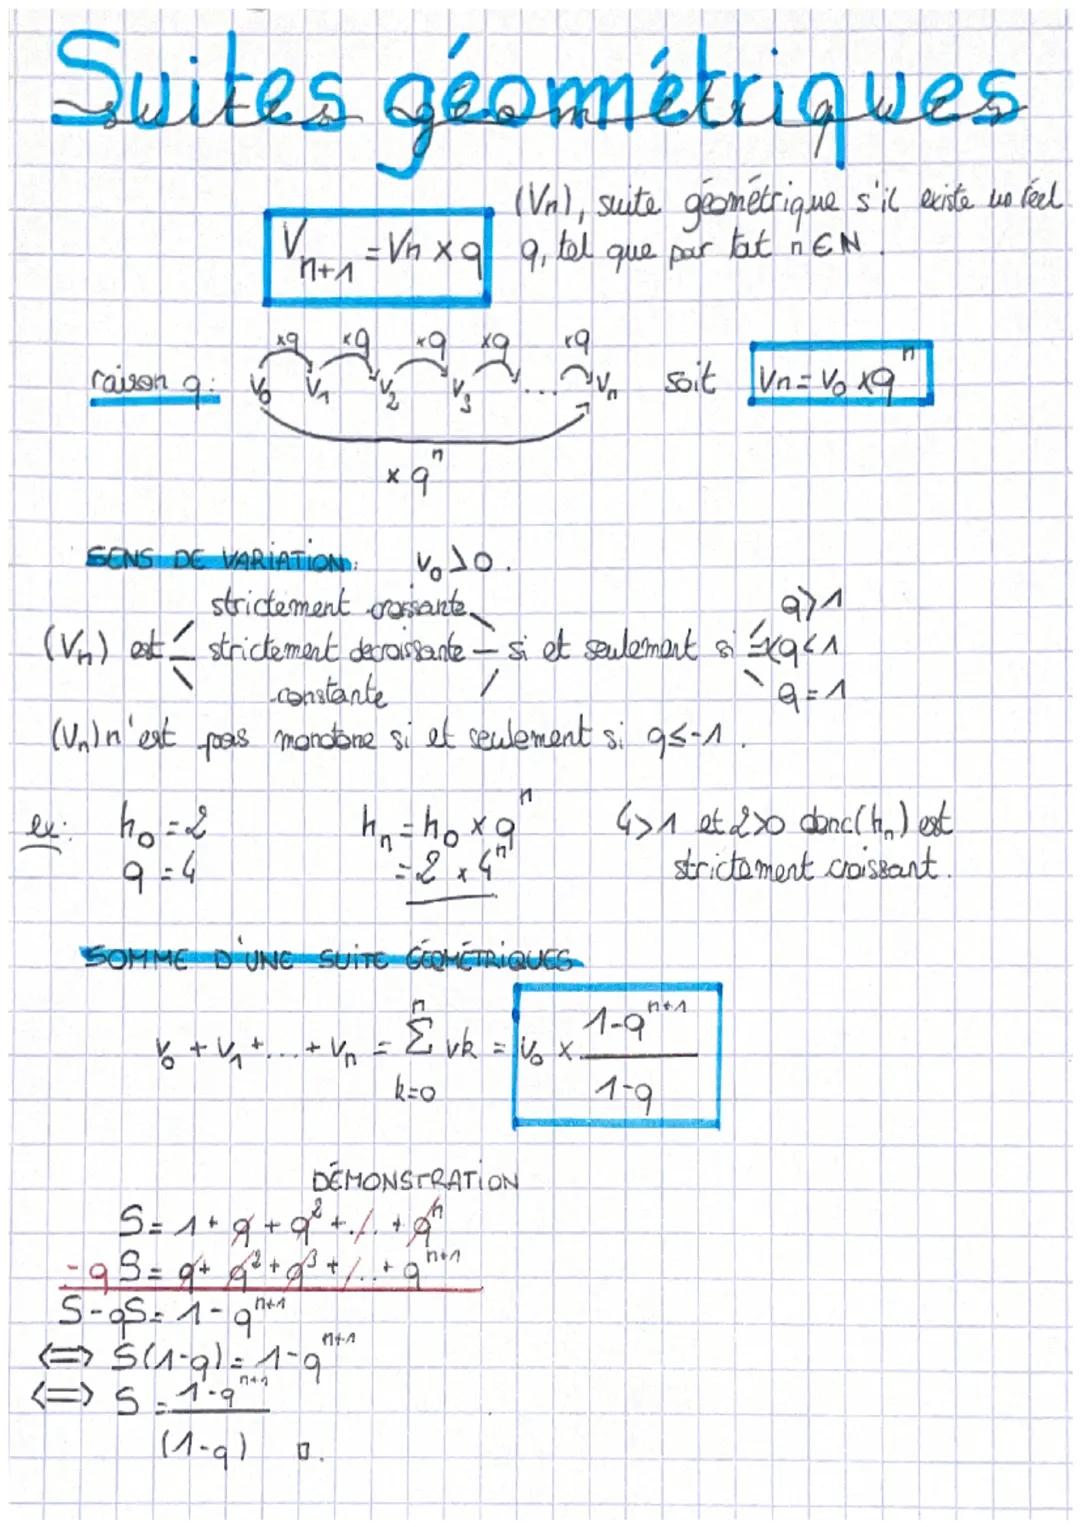 Suites géométriques
(Vn), suite géométrique s'il existe un réel
V_{n+1} = Vn × q
q, tel que par tout n ∈ N.
×q ×q ×q ×q ×q
raison q : V₀ V₁ V₂ V₃ ... Vₙ soit Vn = V₀ × qⁿ
× qⁿ
SENS DE VARIATION: V₀ > 0.
strictement croissante q > 1
(Vₙ) est strictement decroissante si et seulement si q < 1
constante q = 1
(Vₙ) n'est pas monotone si et seulement si q ≤ -1.
ex: h₀ = 2 hₙ = h₀ × qⁿ 4 > 1 et 2 > 0 donc (hₙ) est
q = 4 = 2 × 4ⁿ strictement croissant.
SOMME D'UNE SUITE GÉOMÉTRIQUES
V₀ + V₁ + ... + Vₙ = Σ_{k=0}^{n} vk = V₀ × (1-q^{n+1})/(1-q)
DÉMONSTRATION
S = 1 + q + q² + ... + qⁿ
-qS = q + q² + q³ + ... + q^{n+1}
S - qS = 1 - q^{n+1}
⟺ S(1-q) = 1 - q^{n+1}
⟺ S = 1-q^{n+1}
(1-q) □.